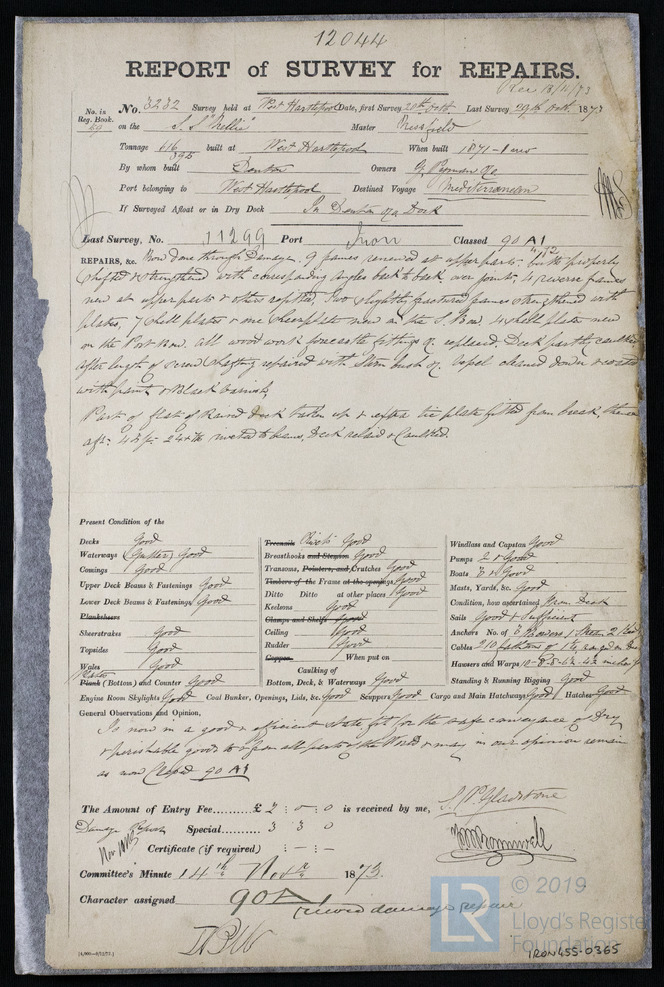 12044
REPORT of SURVEY for REPAIRS.
Rec 13/11/73
No. in Reg. Book. No. 3232 Survey held at West Hartlepool Date, first Survey 20th Octr Last Survey 29th Octr. 1873
on the S.S "Nellie" Master
Tonnage 616 built at West Hartlepool When built 1871
395
By whom built Denton Owners
Port belonging to West Hartlepool Destined Voyage Mediterranean
If Surveyed Afloat or in Dry Dock In Denton Dock
Last Survey, No. 11299 Port Classed 90 A1
REPAIRS, &c. Now done through Damage. 9 frames renewed at upper parts, butts properly
shifted & strengthened with corresponding angles back to back over joints, 4 reverse frames
new at upper parts & others repaired, Two slightly fractured frames strengthened with
plates, 7 shell plates & one sheerplate new on the S. Bow. 4 shell plates new
on the Port Bow. All wood work forecastle fittings &c replaced. Deck partly caulked
After length of screw shafting repaired with Stern bush &c. Vessel cleaned down & coated
with paint & Black varnish
Part of flat of Raised deck taken up & extra tie plate fitted from break, thence
aft: riveted to beams, Deck relaid & Caulked.
Present Condition of the
Decks Good
Waterways (Gutter) Good
Comings Good
Upper Deck Beams & Fastenings Good
Lower Deck Beams & Fastenings Good
Planksheers
Sheerstrakes Good
Topsides Good
Wales Good
Plates
Plank (Bottom) and Counter Good
Treenails Rivets Good
Breasthooks and Stepson Good
Transoms, Pointers, and Crutches Good
Timbers of the Frame at the openings Good
Ditto Ditto at other places Good
Keelsons Good
Clamps and Shelfs Good
Ceiling Good
Rudder Good
Copper When put on
Caulking of
Bottom, Deck, & Waterways Good
Windlass and Capstan Good
Pumps 2 & Good
Boats 3 & Good
Masts, Yards, &c. Good
Condition, how ascertained From Deck
Sails Good & Sufficient
Anchors No. of 3 Bowers 1 Stream 2 Kedge
Cables 210 fathoms of
Hawsers and Warps
Standing & Running Rigging Good
Engine Room Skylights Good Coal Bunker, Openings, Lids, &c. Good Scuppers Good Cargo and Main Hatchways Good Hatches Good
General Observations and Opinion,
Is now in a good & efficient state fit for the safe conveyance of Dry
& perishable goods to & from all parts of the World & may in our opinion remain
as now Classed 90 A1
The Amount of Entry Fee £ 2 : 0 : 0 is received by me, Gladstone
Damage Repairs Special 3 3 0
Certificate (if required) : — : —
Committee's Minute 14th Novr 1873.
Character assigned 90 A
record damage repair
© 2019
LR
Lloyd's Register
Foundation
IRON455-0365